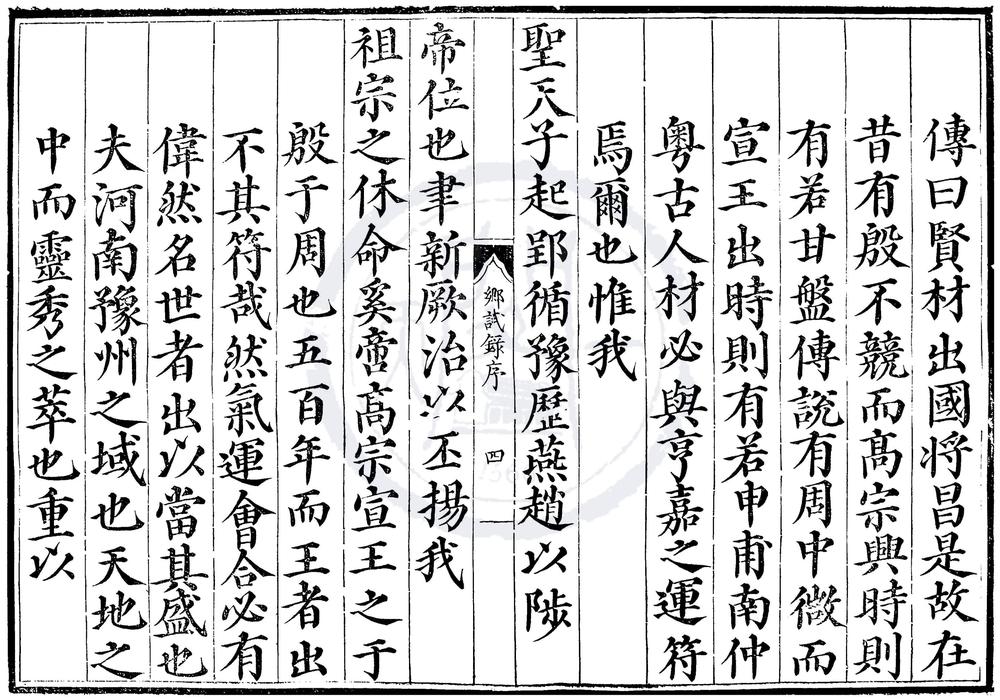 傳曰賢材出國將昌是故在
昔有殷不競而髙宗興時則
有若甘盤傳說有周中微而
宣王出時則有若申甫南仲
粤古人材必與亨嘉之運符
焉爾也惟我
聖天子起郢循豫歷燕趙以陟
鄉試録序
四
帝位也聿新厥治以丕揚我
祖宗之休命奚啻髙宗宣王之于
殷于周也五百年而王者出
不其符哉然氣運會合必有
偉然名世者出以當其盛也
夫河南豫州之域也天地之
中而靈秀之萃也重以